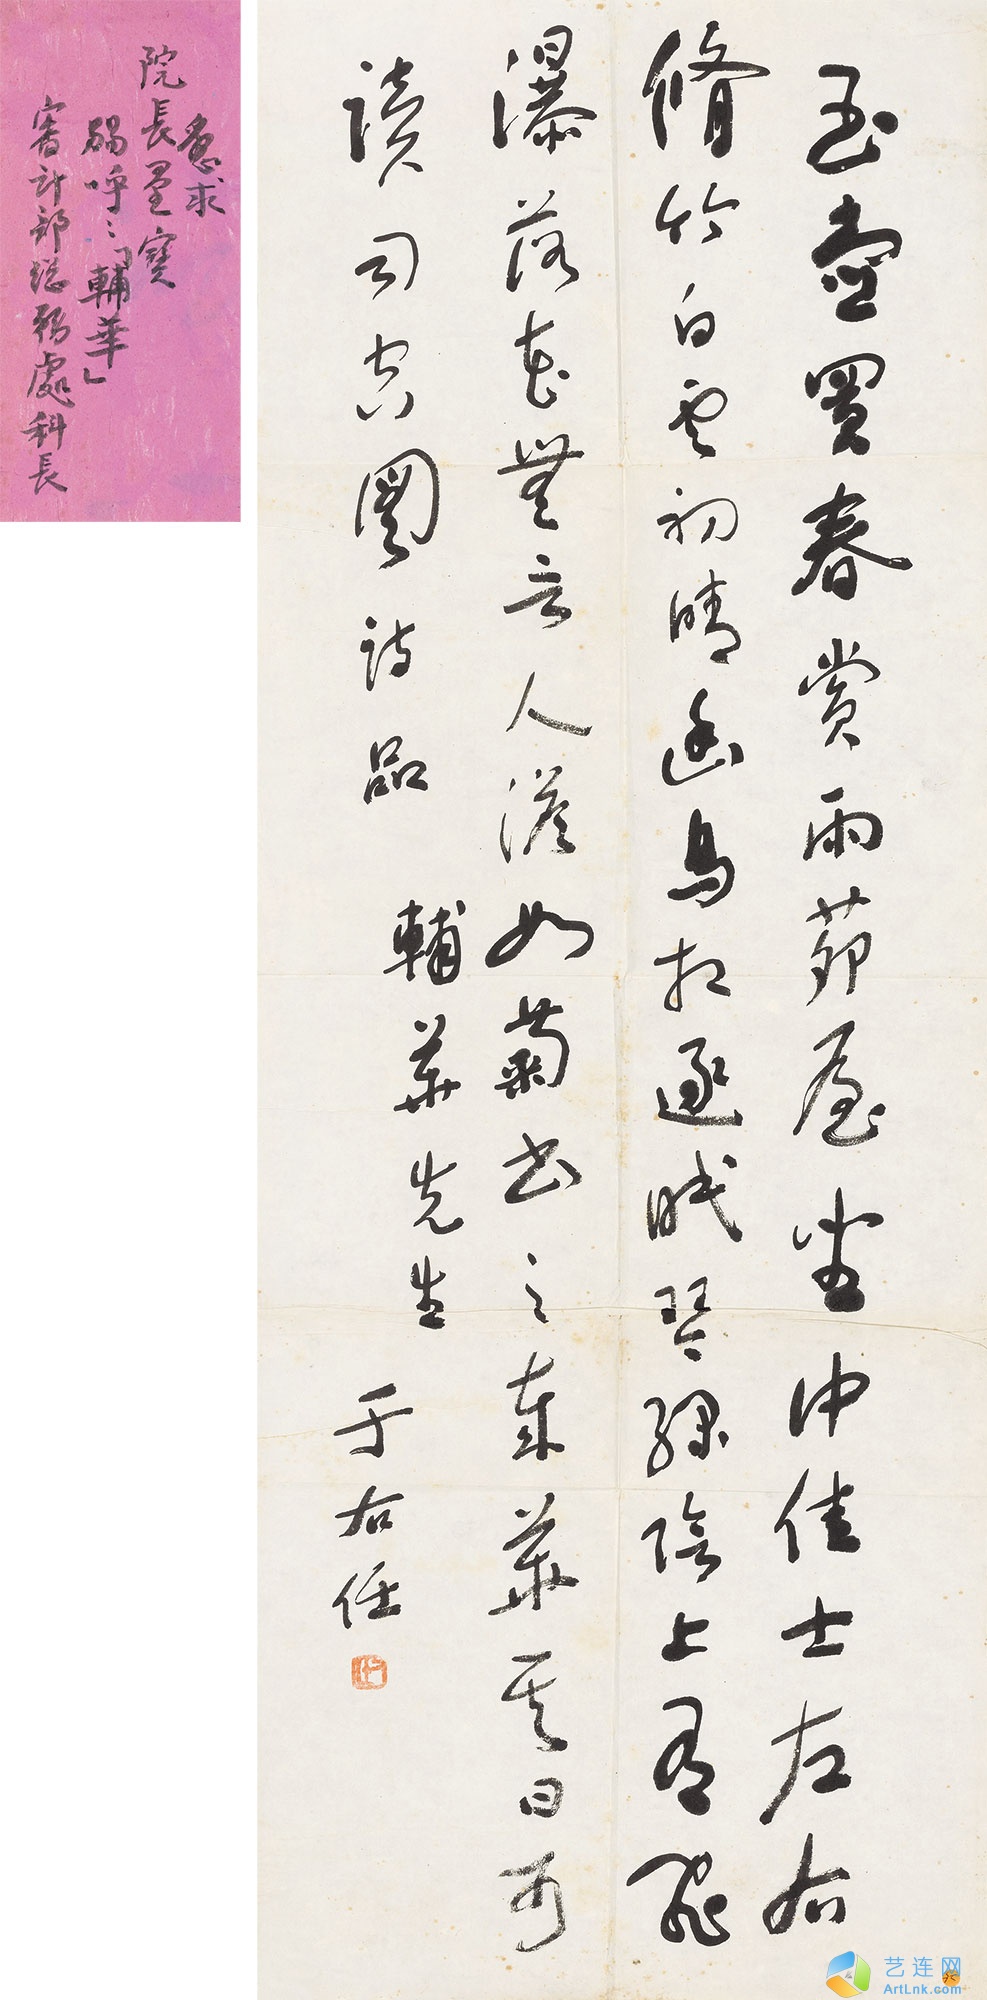 玉壺買春賞雨茆屋坐中佳士左右
脩竹白雲初晴幽鳥相逐眠琴綠陰上有飛
瀑落花無言人澹如菊書之歲華其曰可
讀司空圖詩品
輔華先生
于右任
急求
院長墨寶
賜呼:「輔華」
審計部總務處科長
艺连网
ArtLnk.com